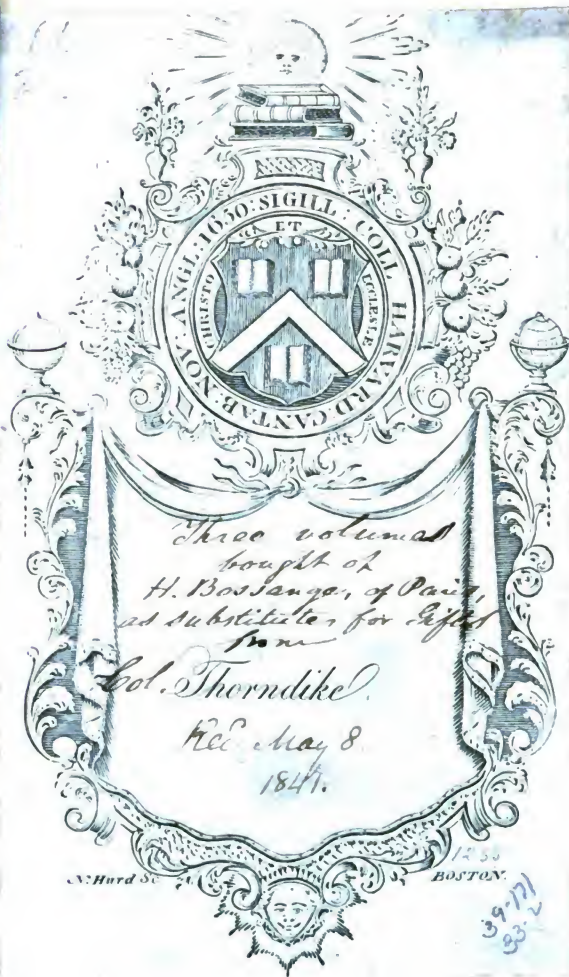 SIGILL : COLL HARVARD CANTAB : NOV. ANGL. 1650 :
ET
CHRISTO
ECCLESIÆ
Three volumes
bought of
H. Bossange, of Paris,
as substitutes for Gifts
from
Col. Thorndike.
Rec. May 8.
1841.
N. Hurd Sc
BOSTON.
39-171
33-2